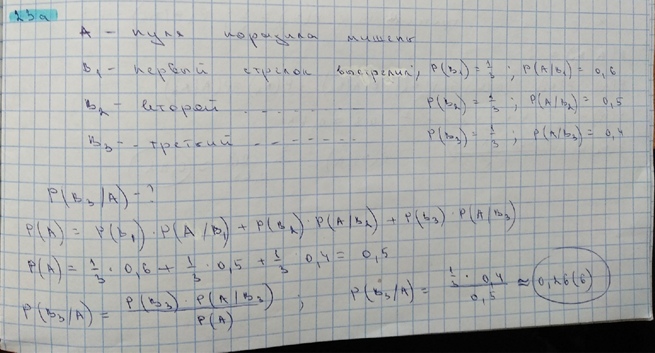 23а
A - пуля поразила мишень
B₁ - первый стрелок выстрелил; P(B₁) = 1/3 ; P(A/B₁) = 0,6
B₂ - второй - - - - - - - P(B₂) = 1/3 ; P(A/B₂) = 0,5
B₃ - третий - - - - - - - P(B₃) = 1/3 ; P(A/B₃) = 0,4
P(B₃/A) - ?
P(A) = P(B₁) · P(A/B₁) + P(B₂) · P(A/B₂) + P(B₃) · P(A/B₃)
P(A) = 1/3 · 0,6 + 1/3 · 0,5 + 1/3 · 0,4 = 0,5
P(B₃/A) = P(B₃) · P(A/B₃) / P(A) ; P(B₃/A) = 1/3 · 0,4 / 0,5 ≈ 0,26(6)